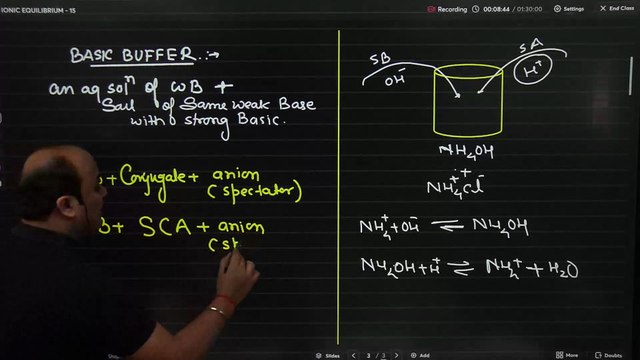 IONIC EQUILIBRIUM - 15
Recording
00:08:44 / 01:30:00
End Class
BASIC BUFFER :→
an aq solⁿ of wB +
Salt of Same weak Base
with strong Basic.
+ Conjugate + anion
(spectator)
B + SCA + anion
(st
SB
OH⁻
SA
H⁺
NH₄OH
NH₄⁺Cl⁻
NH₄⁺ + OH⁻ ⇌ NH₄OH
NH₄OH + H⁺ ⇌ NH₄⁺ + H₂O
Slides
3 / 3
Poll
Doubts: Off
Leaderboard
More